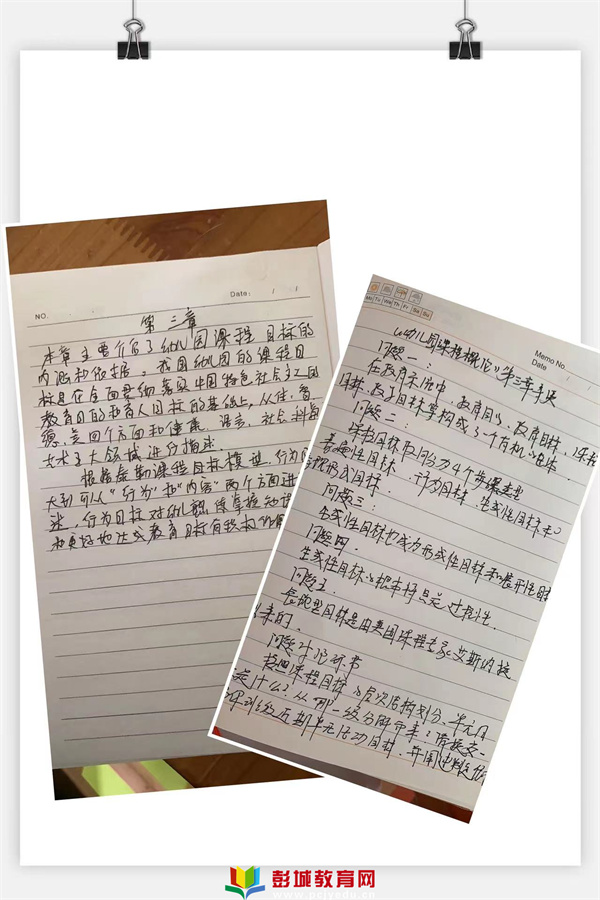 NO.
Date: / /
第三章
本章主要介绍了幼儿园课程目标的
内涵和依据。我国幼儿园的课程目
标是在全面贯彻落实中国特色社会主义
教育目的和育人目标的基础上,从体、智
德、美四个方面和健康、语言、社会、科学
艺术五大领域进行描述
根据泰勒课程目标模型,行为目
大致可以从"行为"和"内容"两个方面进
述,行为目标对幼儿
和更好地达成教育目标有积极作用
Memo No.
Date / /
Mo Tu We Th Fr Sa Su
《幼儿园课程概论》第三章
问题一:
在教育系统中,教育目的、教育目标、课程
目标、教学目标等构成了一个有机整体。
问题二:
课程目标取向分为4个
普遍性目标、行为目标、生成性目标和
表现形式目标。
问题三:
生成性目标也成为形成性目标和展开性目标
问题四
生成性目标的根本特点是过程性。
问题五
表现型目标是由美国课程专家艾斯纳提
出来的。
问题讨论环节
按照课程目标的层次结构划分,单元目
是什么?从哪一级分解而来?
彭城教育网